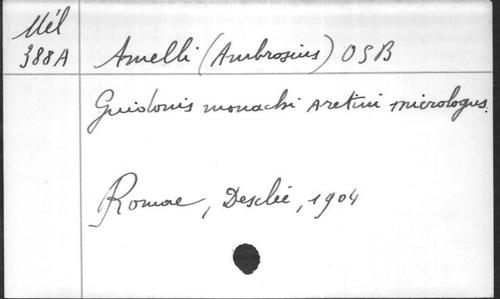 Mél
388A
Amelli (Ambrosius) OSB
Guidonis monachi Aretini micrologus.
Romae, Desclée, 1904